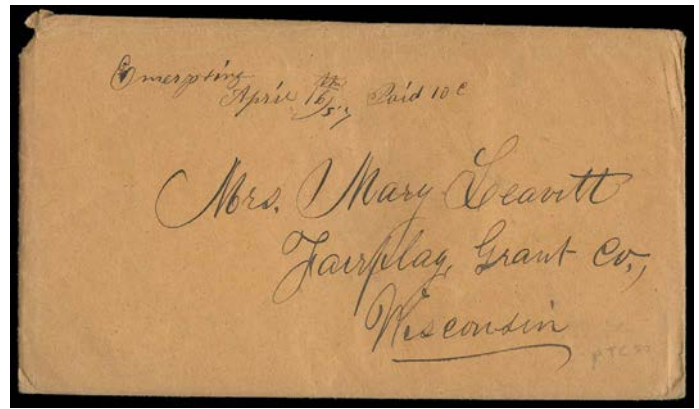 April 16th/57 Paid 10 c
Mrs. Mary Leavitt
Fairplay, Grant Co.,
Wisconsin